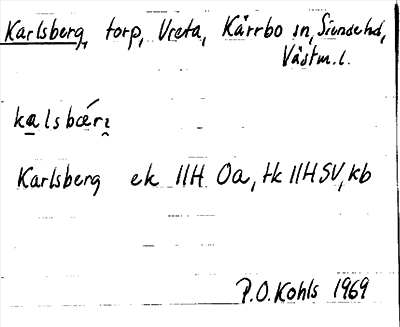 Karlsberg, torp, Vreta, Kärrbo sn, Siende hd,
Västm. l.
kalsbærɩ
Karlsberg ek 11H Oa, tk 11H SV, kb
P.O. Kohls 1969